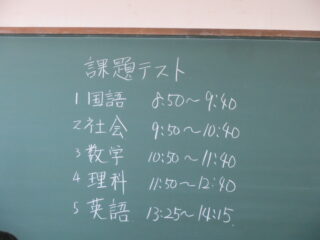 課題テスト
1 国語 8:50～9:40
2 社会 9:50～10:40
3 数学 10:50～11:40
4 理科 11:50～12:40
5 英語 13:25～14:15